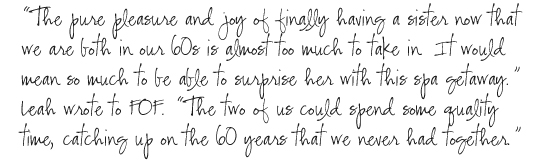 "The pure pleasure and joy of finally having a sister now that
we are both in our 60s is almost too much to take in  It would
mean so much to be able to surprise her with this spa getaway."
Leah wrote to FOF. "The two of us could spend some quality
time, catching up on the 60 years that we never had together."